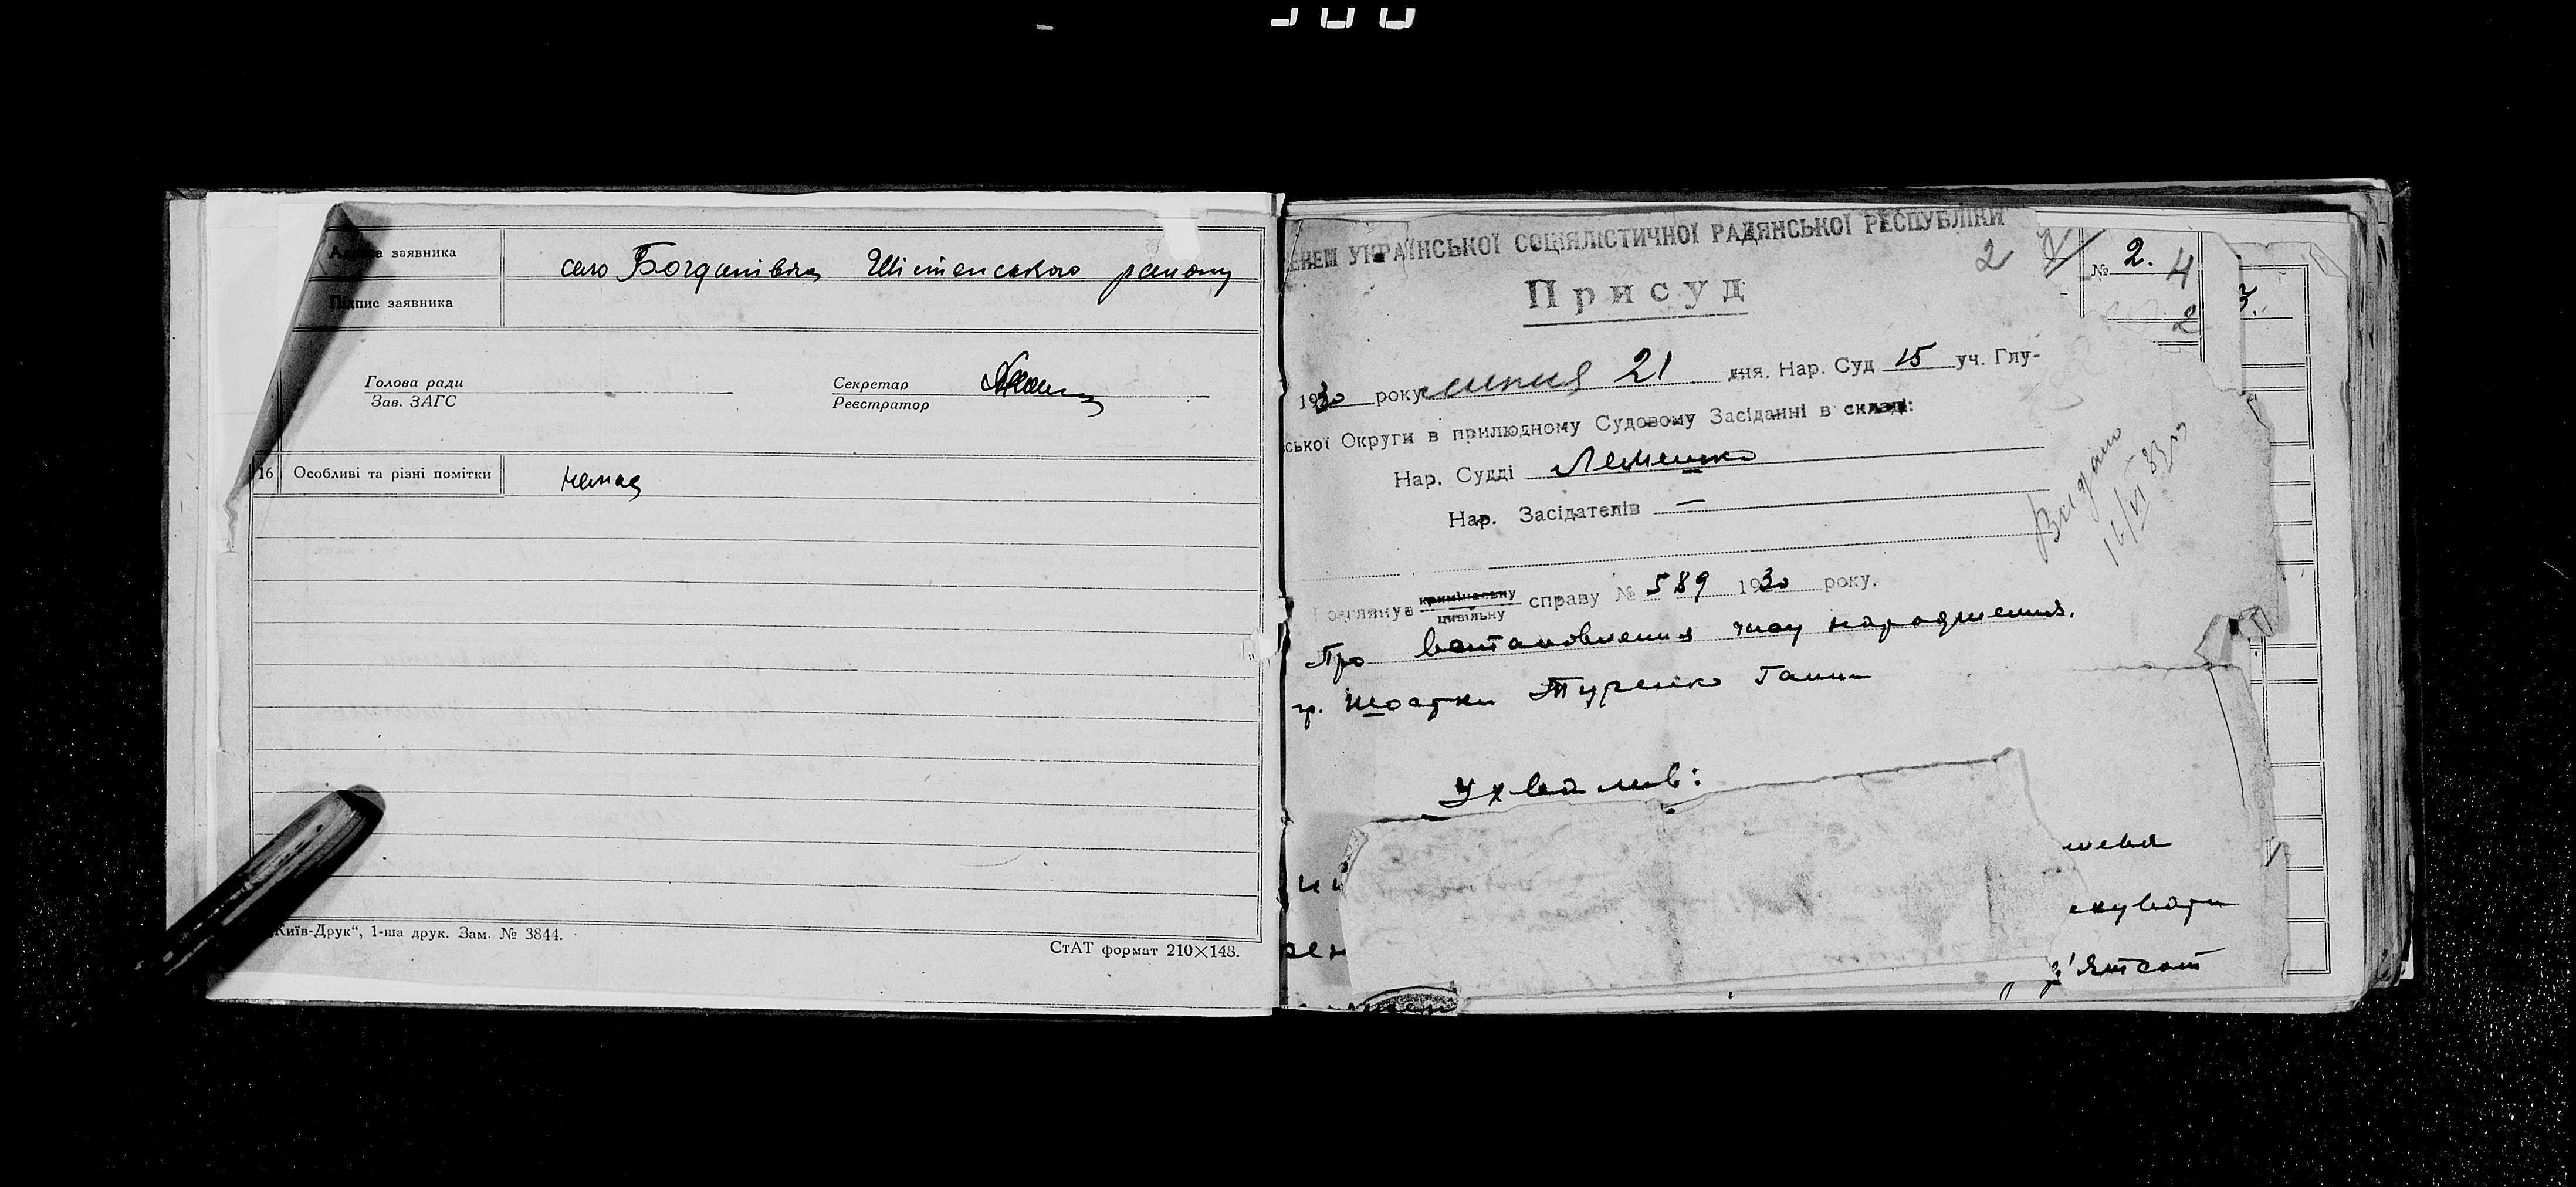 Адреса заявника село Богданівка Шістенського району
Підпис заявника
Голова ради
Зав. ЗАГС
Секретар
Реєстратор
16 Особливі та різні помітки немає
„Київ-Друк“, 1-ша друк. Зам. № 3844.
СтАТ формат 210×148.
ЕНЕМ УКРАЇНСЬКОЇ СОЦІЯЛІСТИЧНОЇ РАДЯНСЬКОЇ РЕСПУБЛІКИ
2
№ 2. 4
3.
2
Присуд
1930 року липня 21 дня. Нар. Суд 15 уч. Глу-
ської Округи в прилюдному Судовому Засіданні в складі:
Нар. Судді Лемешко
Нар. Засідателів —
Видано
16/VI 83
озглянув кримінальну
цивільну справу № 589 1930 року.
Про встановлення часу народження.
гр. Шостки Туренко Ганни
Ухвалив:
екувати
рен
'ятсот